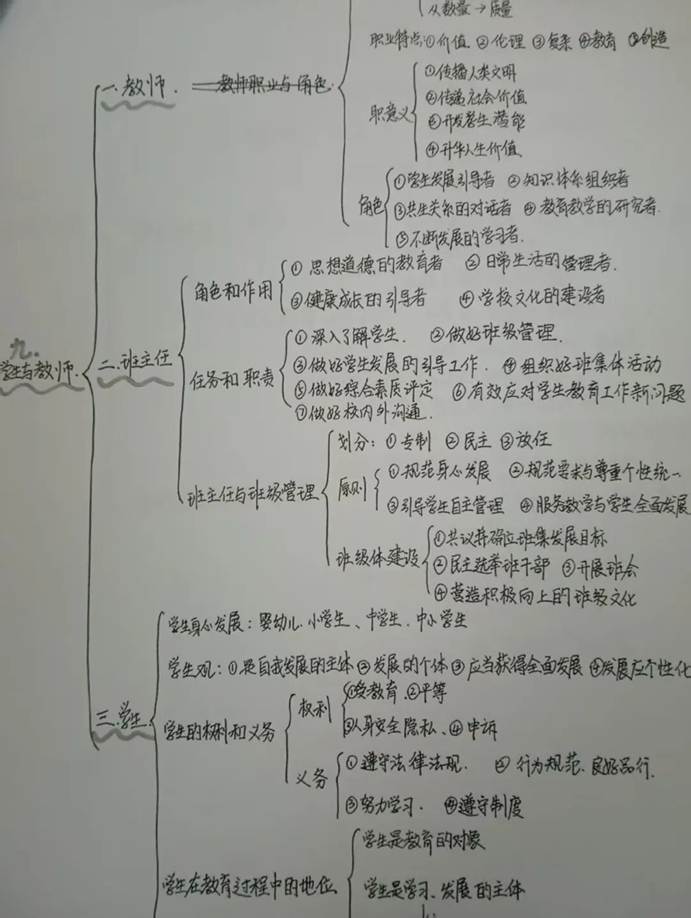 从数量→质量
职业特点:①价值 ②伦理 ③复杂 ④教育 ⑤创造
一.教师. 教师职业与角色
职意义
①传播人类文明
②传递社会价值
③开发学生潜能
④升华人生价值
角色
①学生发展引导者 ②知识体系组织者
③共生关系的对话者 ④教育教学的研究者
⑤不断发展的学习者.
九.
学生与教师.
二.班主任
角色和作用
①思想道德的教育者 ②日常生活的管理者.
③健康成长的引导者 ④学校文化的建设者
任务和职责
①深入了解学生. ②做好班级管理.
③做好学生发展的引导工作. ④组织好班集体活动
⑤做好综合素质评定 ⑥有效应对学生教育工作新问题
⑦做好校内外沟通.
班主任与班级管理
划分:①专制 ②民主 ③放任
原则
①规范身心发展 ②规范要求与尊重个性统一
③引导学生自主管理 ④服务教学与学生全面发展
班级体建设
①共议并确立班集发展目标
②民主选举班干部 ③开展班会
④营造积极向上的班级文化
三.学生
学生身心发展:婴幼儿.小学生、中学生.中小学生
学生观:①是自我发展的主体②发展的个体③应当获得全面发展 ④发展应个性化
学生的权利和义务
权利
①受教育.②平等
③人身安全隐私、④申诉
义务
①遵守法律法规. ②行为规范.良好品行.
③努力学习. ④遵守制度
学生在教育过程中的地位
学生是教育的对象
学生是学习、发展的主体